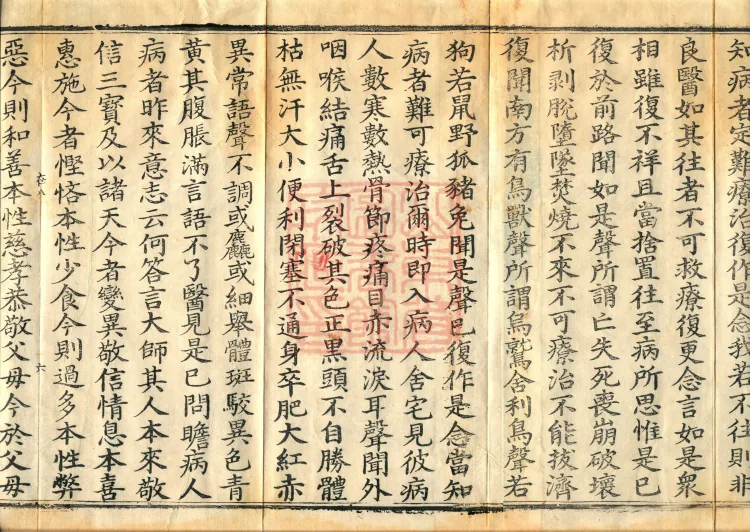 知病者定難療治復作是念我若不往則非
良醫如其往者不可救療復更念言如是衆
相雖復不祥且當捨置往至病所思惟是已
復於前路聞如是聲所謂亡失死喪崩破壞
析剥脫墮墜焚燒不來不可療治不能拔濟
復聞南方有鳥獸聲所謂烏鷲舍利鳥聲若
狗若鼠野狐猪兔聞是聲已復作是念當知
病者難可療治爾時即入病人舍宅見彼病
人數寒數熱骨節疼痛目赤流淚耳聲聞外
咽喉結痛舌上裂破其色正黑頭不自勝體
枯無汗大小便利閉塞不通身卒肥大紅赤
異常語聲不調或麤或細舉體斑駮異色青
黃其腹脹滿言語不了醫見是已問瞻病人
病者昨來意志云何答言大師其人本來敬
信三寶及以諸天今者變異敬信情息本喜
惠施今者慳悋本性少食今則過多本性弊
惡今則和善本性慈孝恭敬父母今於父母
六